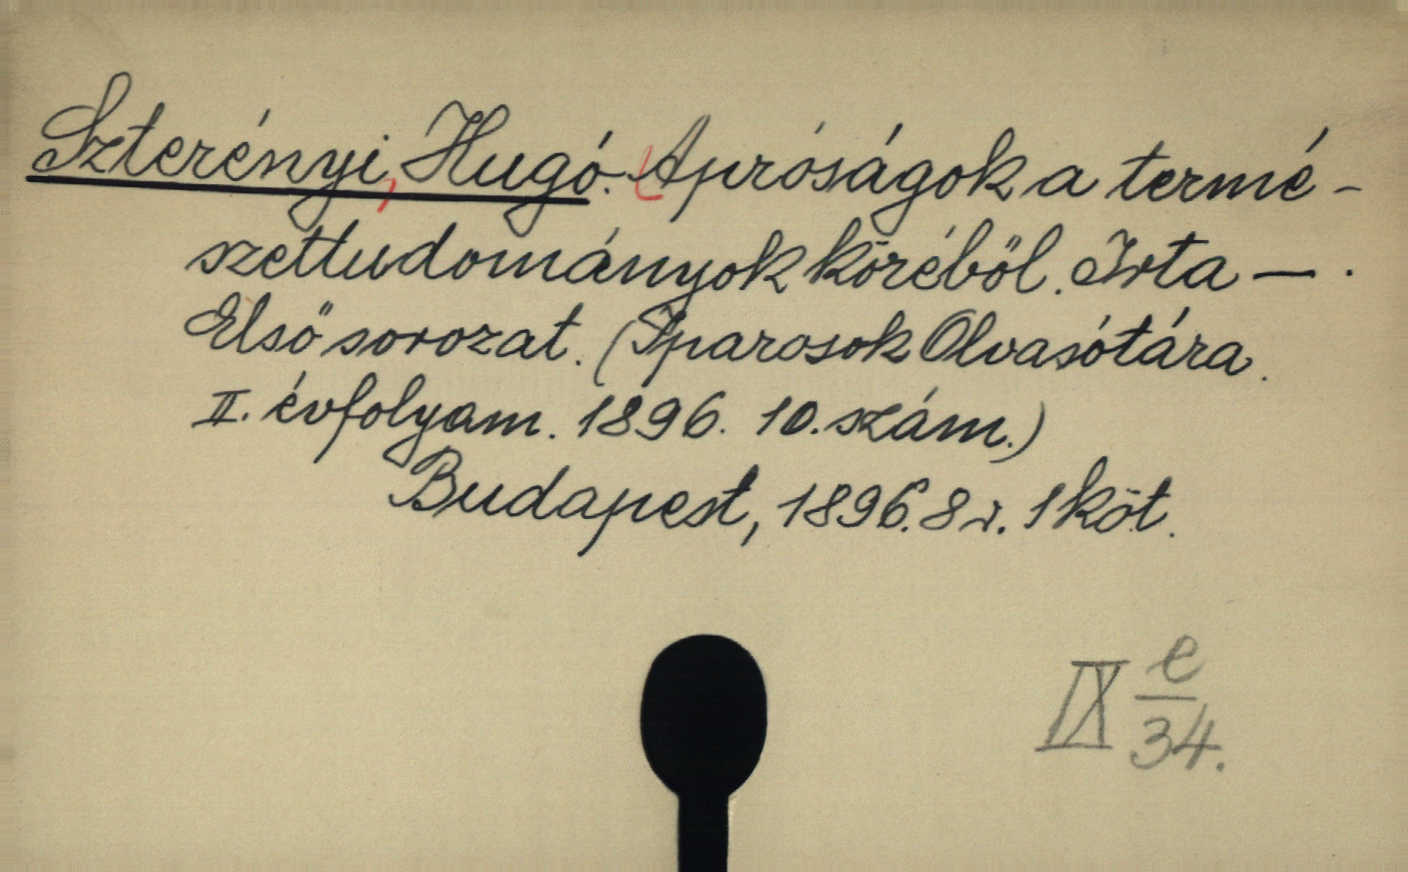 Szterényi, Hugó. Apróságok a termé-
szettudományok köréből. Irta — .
Első sorozat. (Iparosok Olvasótára.
II. évfolyam. 1896. 10. szám.)
Budapest, 1896. 8r. 1 köt.
IX e/34.